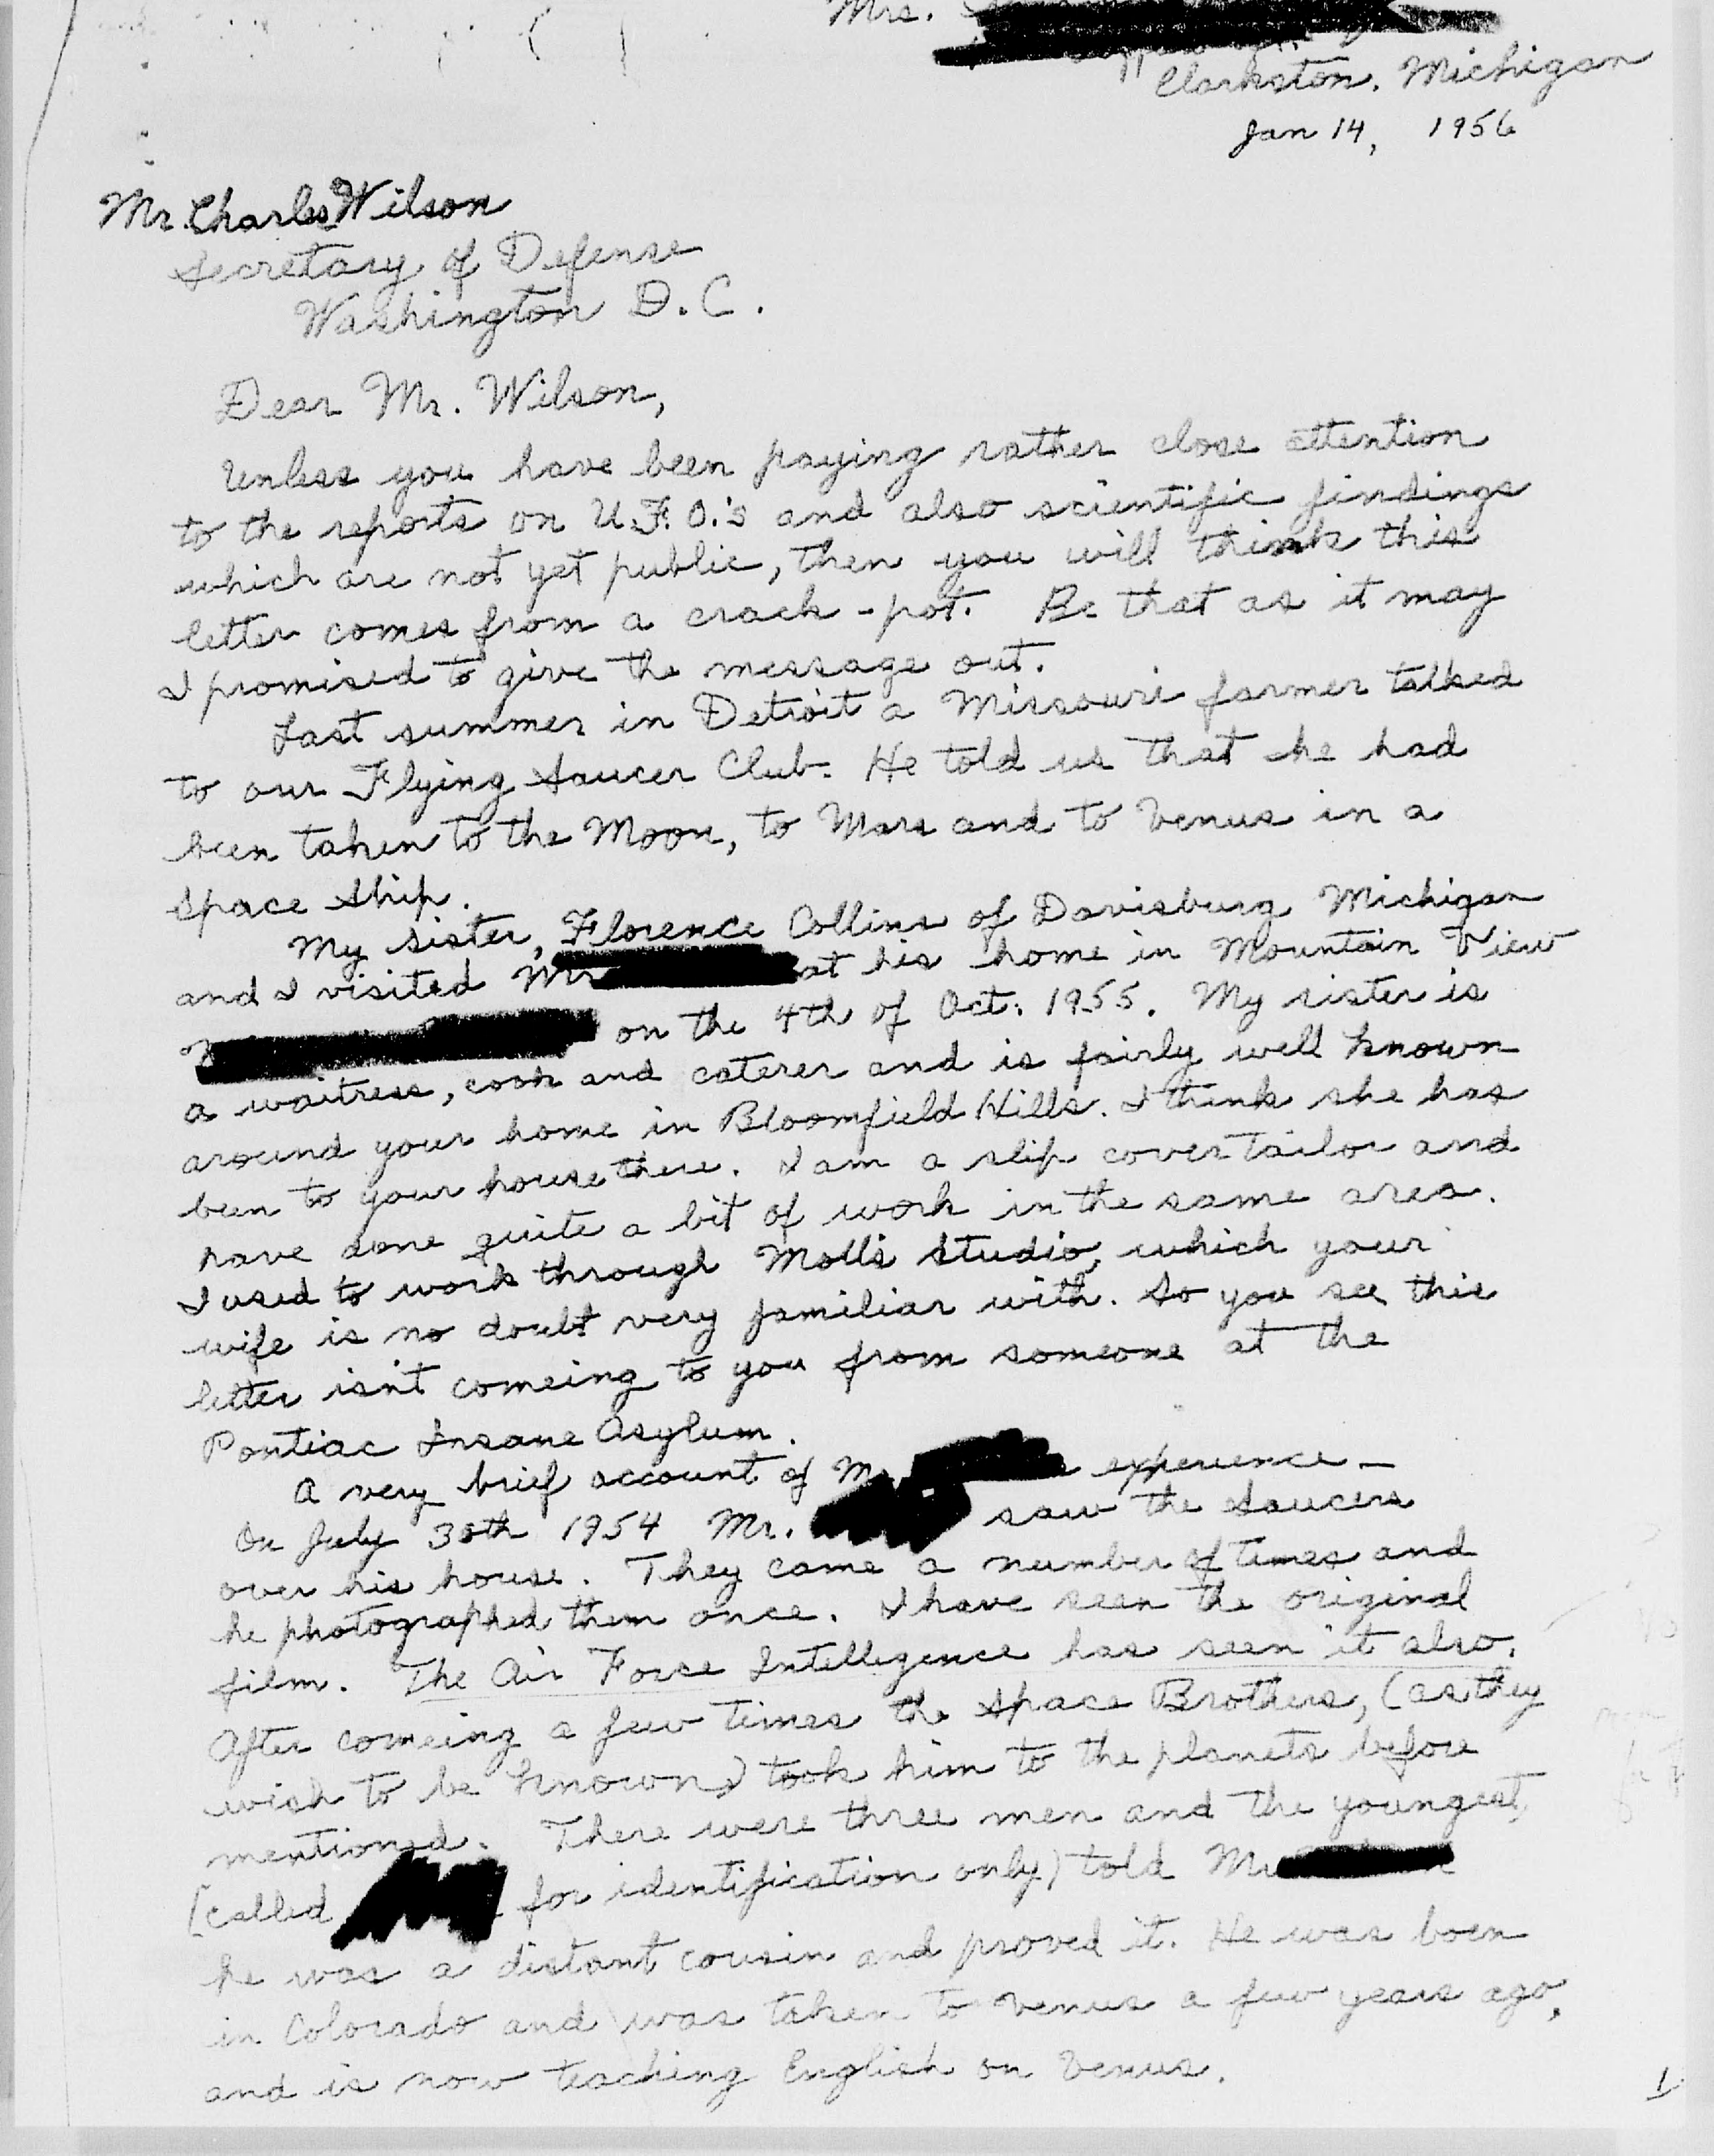 Mrs.
Clarkston, Michigan
Jan 14, 1956
Mr. Charles Wilson
Secretary of Defense
Washington D.C.
Dear Mr. Wilson,
Unless you have been paying rather close attention
to the reports on U.F.O.'s and also scientific findings
which are not yet public, then you will think this
letter comes from a crack-pot. Be that as it may
I promised to give the message out.
Last summer in Detroit a Missouri farmer talked
to our Flying Saucer Club. He told us that he had
been taken to the Moon, to Mars and to Venus in a
space ship.
My sister, Florence Collins of Davisburg Michigan
and I visited Mr at his home in Mountain View
on the 4th of Oct. 1955. My sister is
a waitress, cook and caterer and is fairly well known
around your home in Bloomfield Hills. I think she has
been to your house there. I am a slip cover tailor and
have done quite a bit of work in the same area.
I used to work through Moll's Studio, which your
wife is no doubt very familiar with. So you see this
letter isn't comeing to you from someone at the
Pontiac Insane Asylum.
A very brief account of Mr experience -
On July 30th 1954 Mr. saw the saucers
over his house. They came a number of times and
he photographed them once. I have seen the original
film. The Air Force Intelligence has seen it also.
After comeing a few times the Space Brothers, (as they
wish to be known) took him to the planets before
mentioned. There were three men and the youngest,
(called for identification only) told Mr
he was a distant cousin and proved it. He was born
in Colorado and was taken to Venus a few years ago,
and is now teaching English on Venus.
1